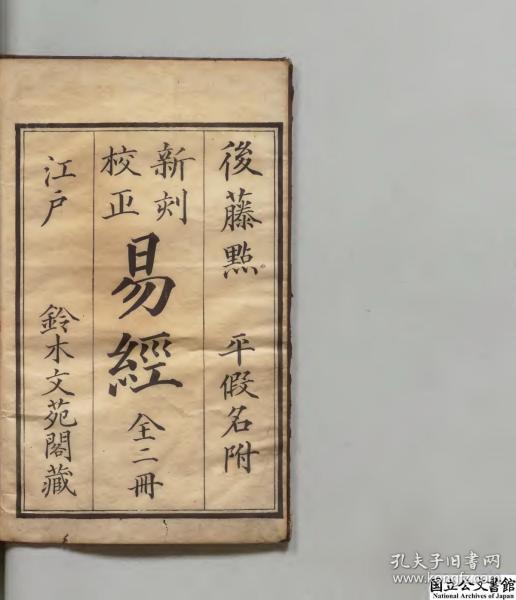 後藤點 平假名附
新刻
校正
易經 全二冊
江戸 鈴木文苑閣藏
孔夫子旧书网
国立公文書館
National Archives of Japan